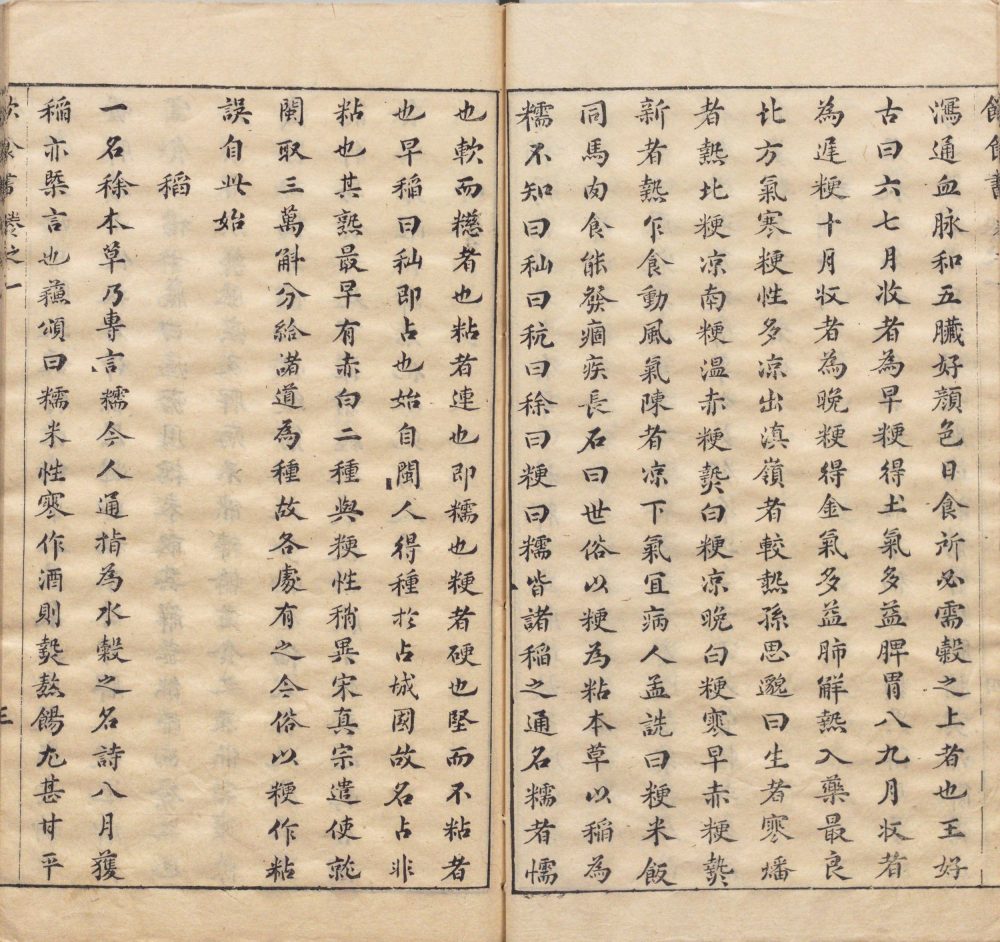 瀉通血脉和五臟好顔色日食所必需穀之上者也王好
古曰六七月收者為早粳得土氣多益脾胃八九月收者
為遲粳十月收者為晚粳得金氣多益肺解熱入藥最良
北方氣寒粳性多凉出滇嶺者較熱孫思邈曰生者寒燔
者熱北粳凉南粳温赤粳𤍠白粳凉晚白粳寒早赤粳𤍠
新者熱乍食動風氣陳者凉下氣宜病人孟詵曰粳米飯
同馬肉食能發痼疾長石曰世俗以粳為粘本草以稻為
糯不知曰秈曰秔曰稌曰粳曰糯皆諸稻之通名糯者懦
也軟而㦬者也粘者連也即糯也粳者硬也堅而不粘者
也早稲曰秈即占也始自閩人得種於占城國故名占非
粘也其熟最早有赤白二種與粳性稍異宋真宗遣使就
閩取三萬斛分給諸道為種故各處有之今俗以粳作粘
誤自此始
稻
一名稌本草乃專言糯今人通指為水穀之名詩八月獲
稲亦槩言也蘓頌曰糯米性寒作酒則𤍠熬餳尤甚甘平
卷之一
三